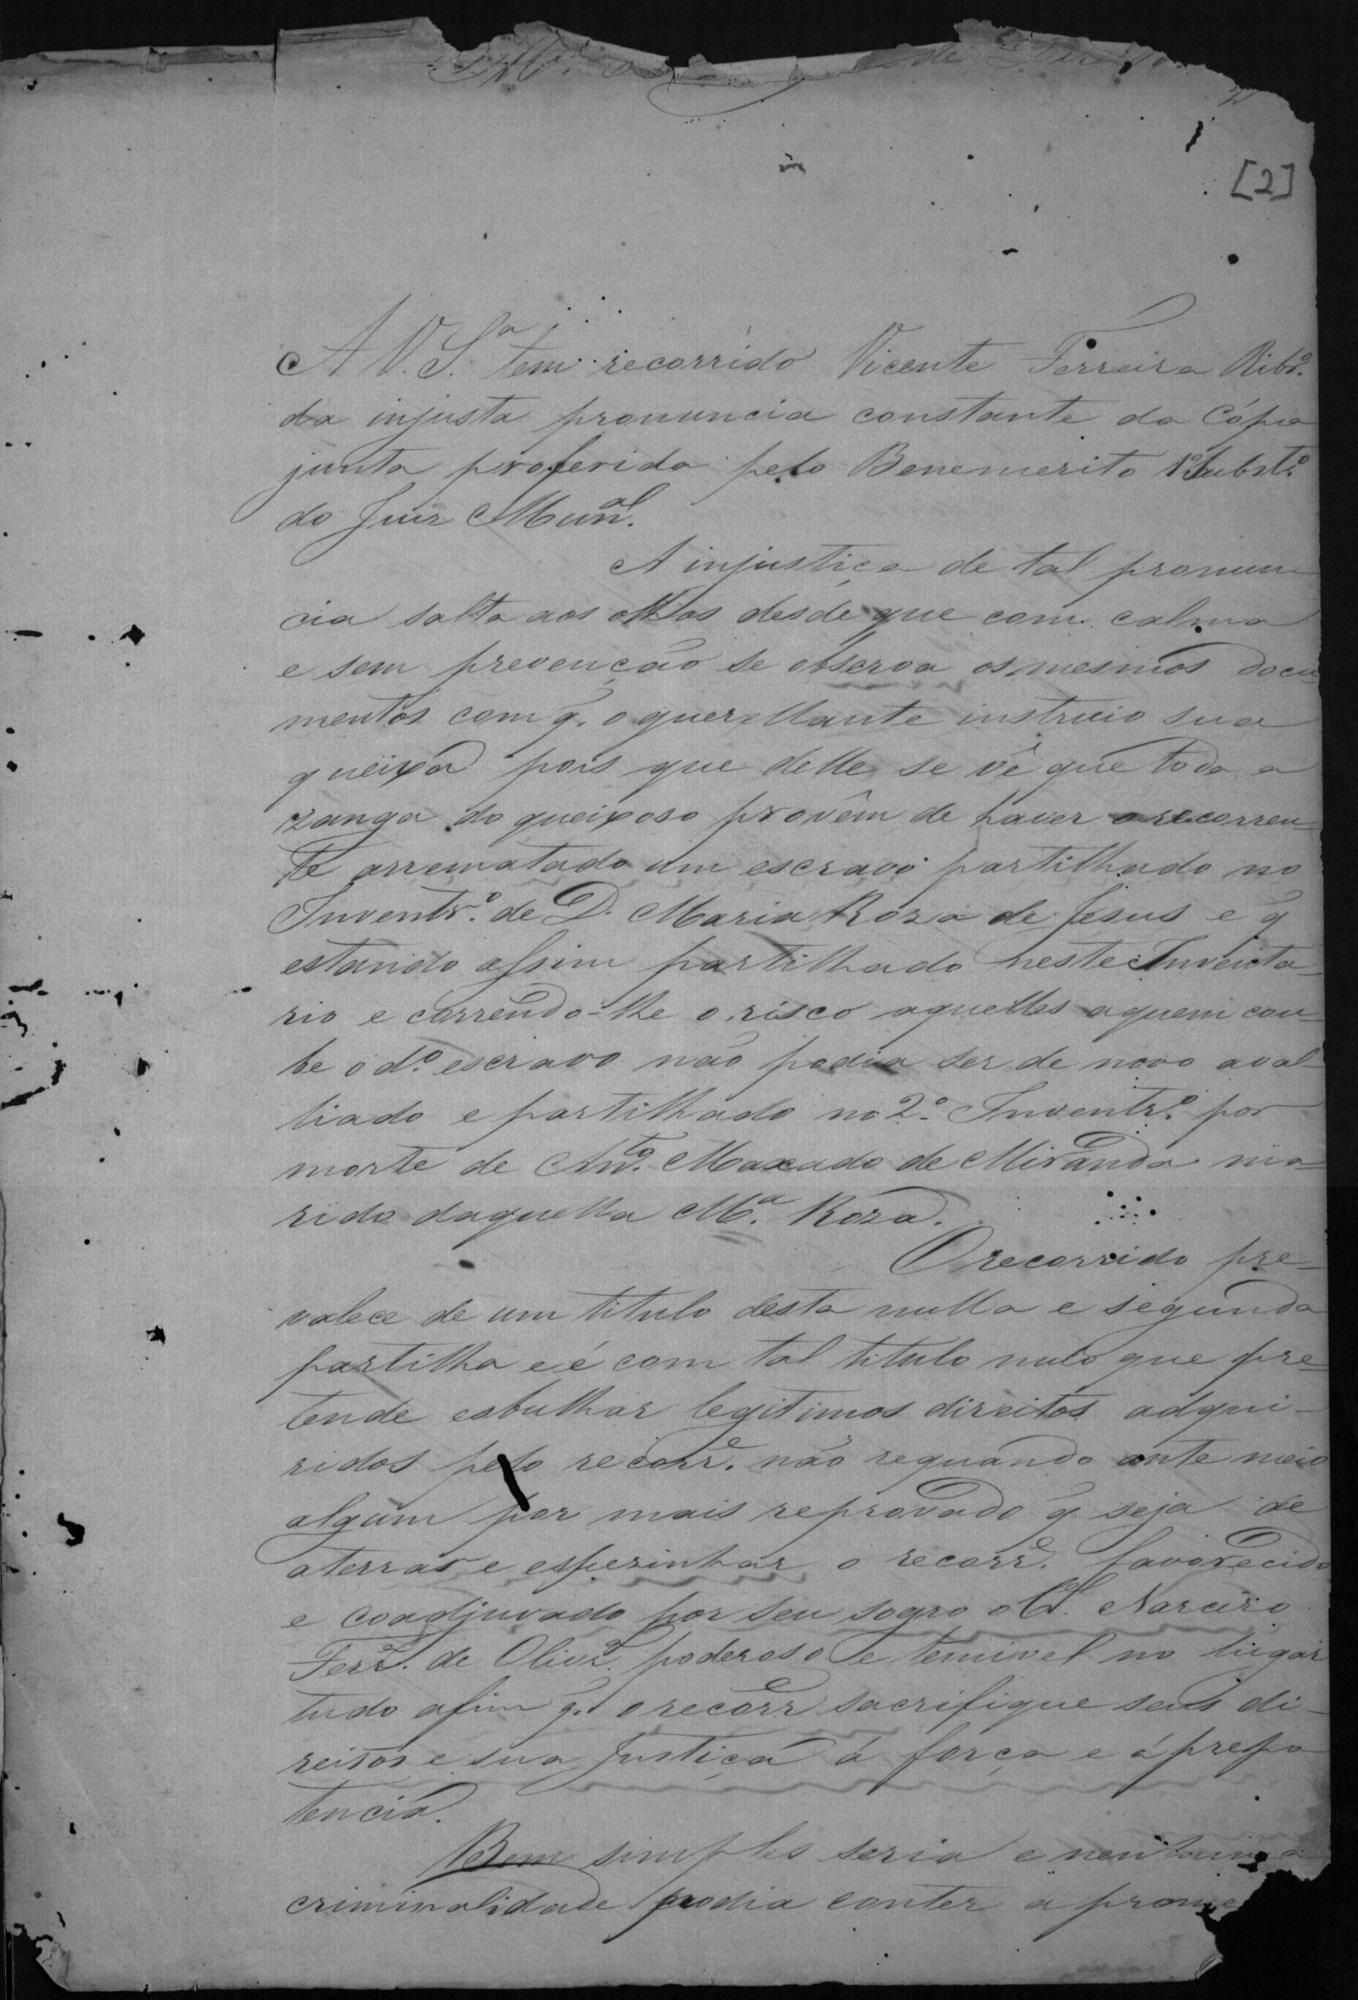 de Dir
2
[2]
A V. S.ª tem recorrido Vicente Ferreira Ribr.º
da injusta pronuncia constante da Cópia
junta proferida pelo Benemerito 1º Subst.º
do Juiz Mun.al
A injustiça de tal pronun
cia salta aos olhos desde que com calma
e sem prevenção se observa os mesmos docu
mentos com q̃. o querellante instruio sua
queixa pois que delle se vê que toda a
zanga do queixoso provêm de haver o recorren-
te arrematado um escravo partilhado no
Inventr.º de D. Maria Roza de Jesus e q̃
estando assim partilhado neste Inventa-
rio e correndo-lhe o risco aquelles aquem cou-
be o d.º escravo não podia ser de novo aval-
liado e partilhado no 2.º Inventr.º por
morte de Ant.º Maxado de Miranda ma-
rido daquella M.ª Roza.
O recorrido pre-
valece de um titulo desta nulla e segunda
partilha e é com tal titulo nulo que pre-
tende esbulhar legitimos direitos adqui-
ridos pelo recorr.e não requando ante meio
algum por mais reprovado q̃ seja de
aterrar e espezinhar o recorr.e favorecido
e coadjuvado por seu sogro o C.el Narcizo
Ferr.ª de Olivr.ª poderoso e temivel no lugar
tudo afim q̃. o recorr.e sacrifique seus di-
reitos e sua Justiça á força e á prepo
tencia.
Bem simples seria e nenhuma
criminalidade podia conter a